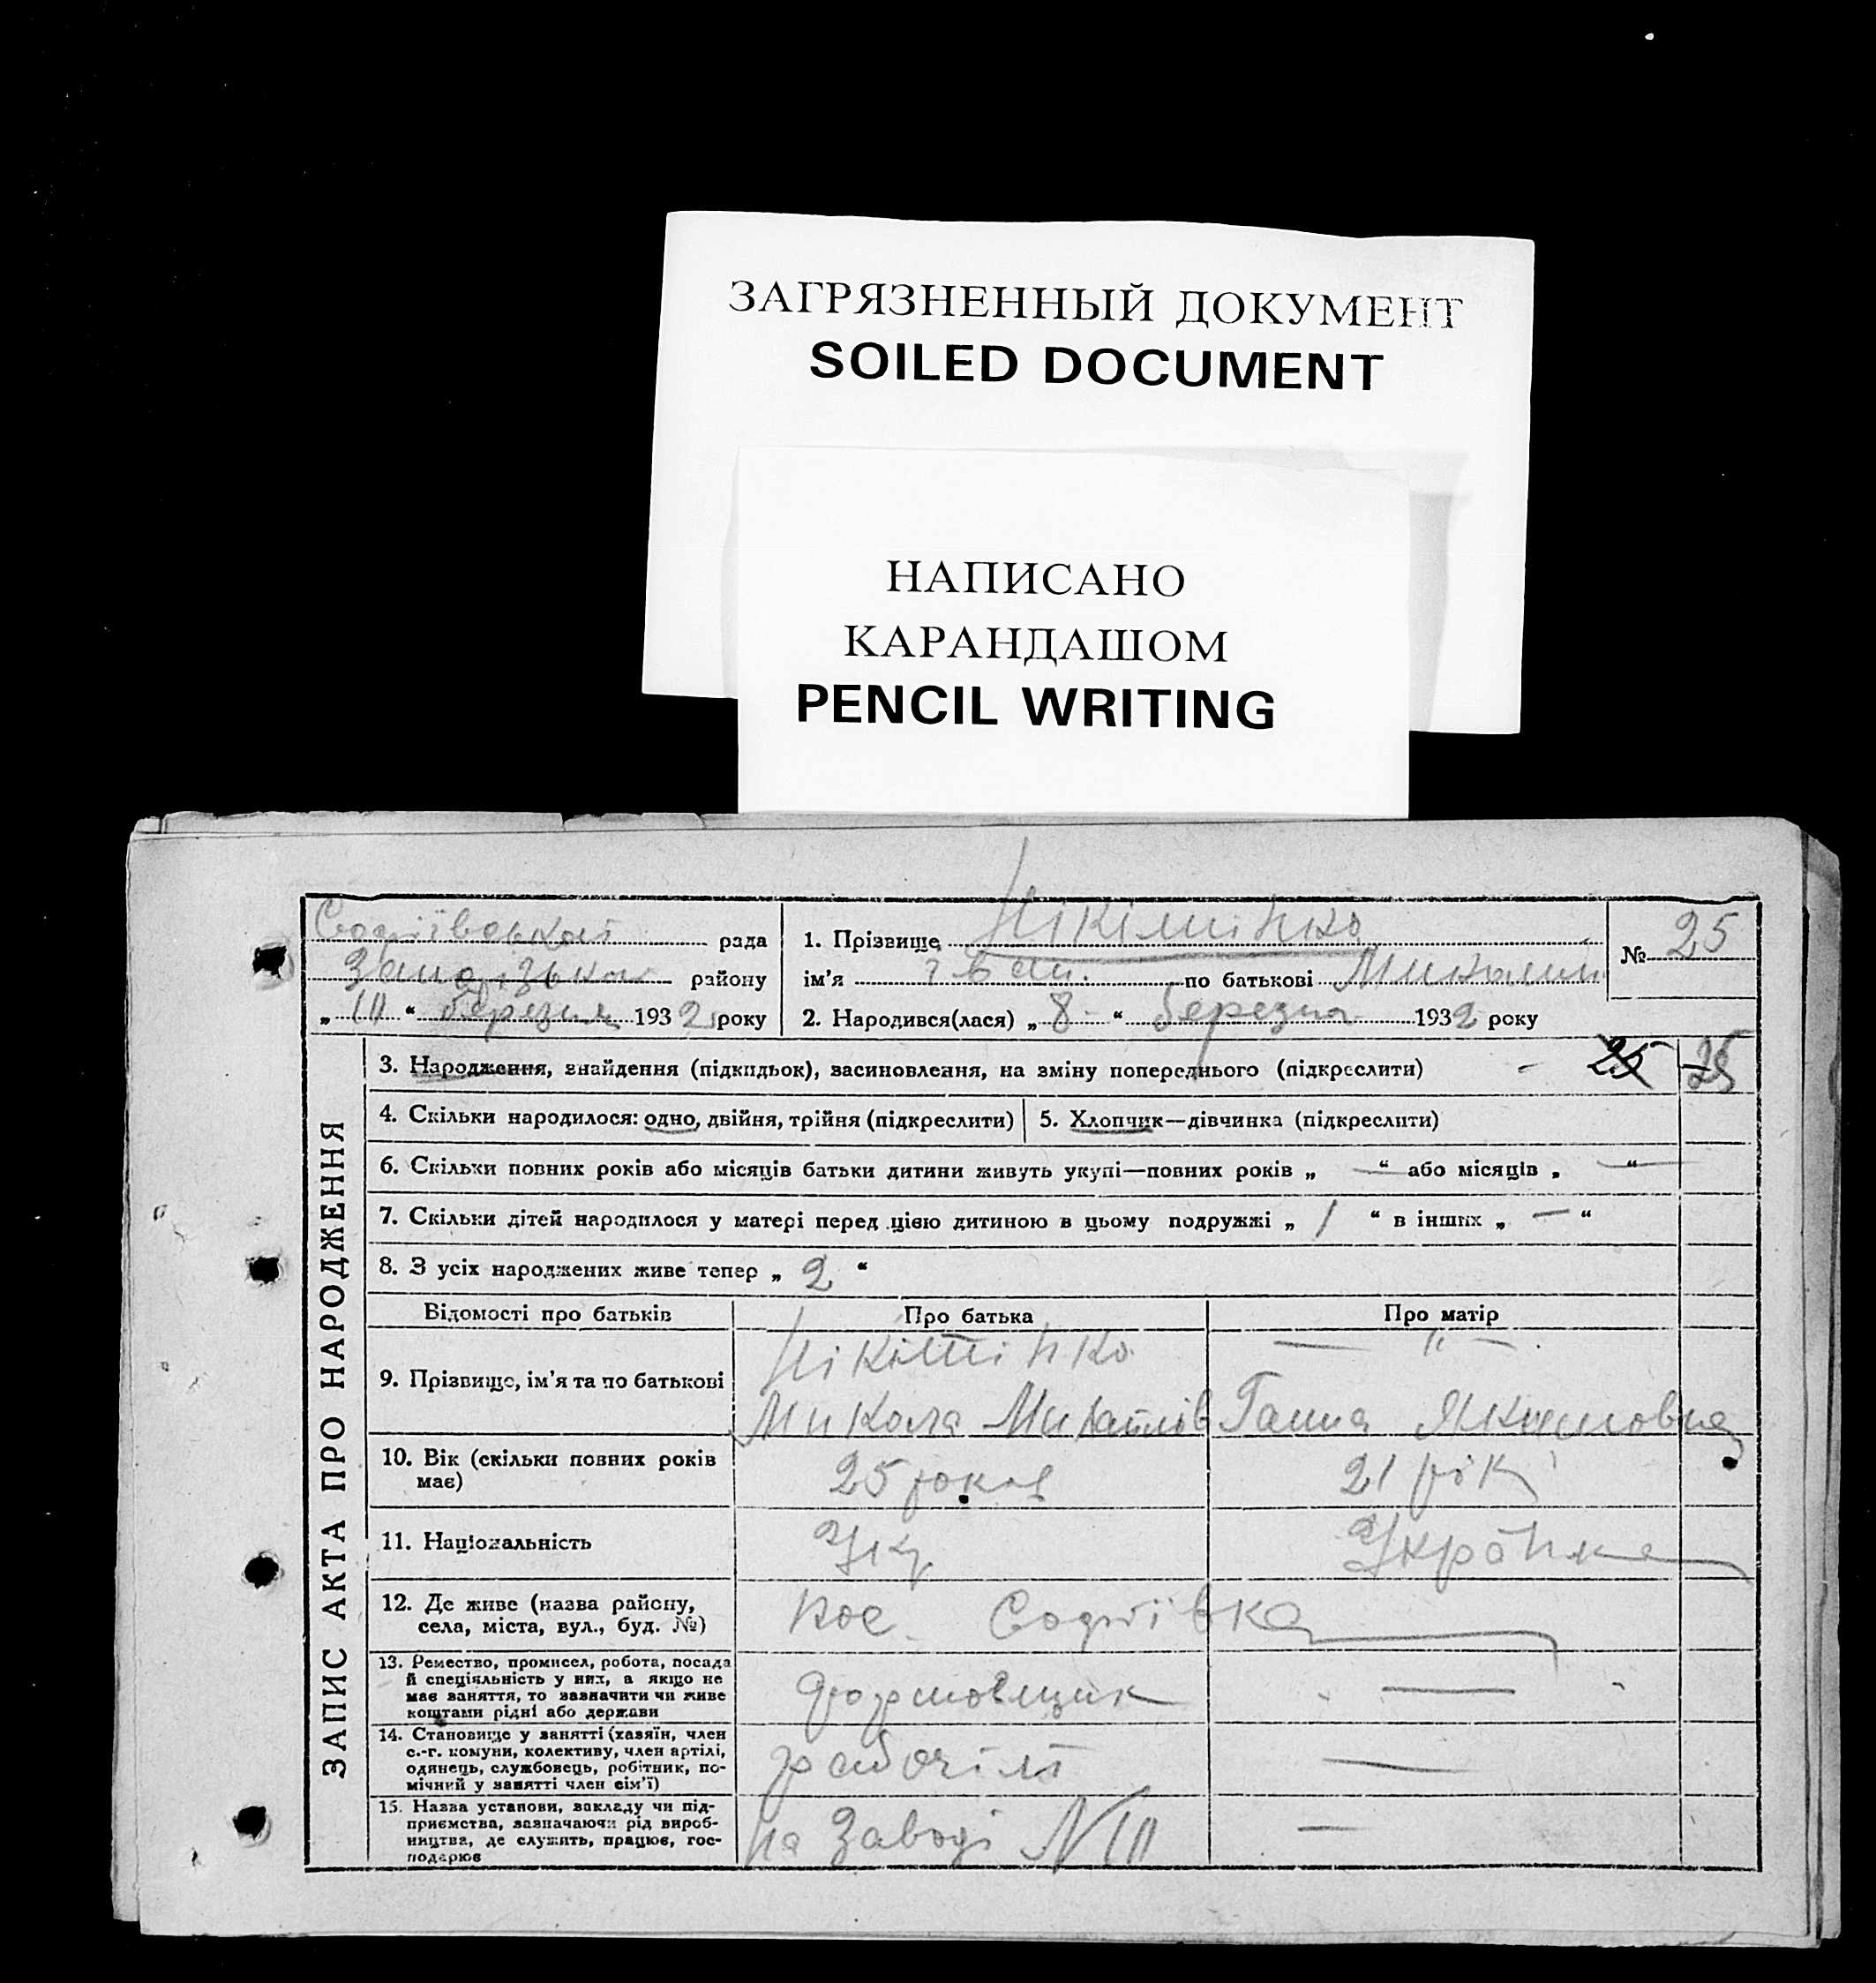 ЗАГРЯЗНЕННЫЙ ДОКУМЕНТ
SOILED DOCUMENT
НАПИСАНО
КАРАНДАШОМ
PENCIL WRITING
Софіївської рада
району
„ 10 “ березня 1932 року
1. Прізвище Нікітінко
ім'я Іван. по батькові
2. Народився(лася) „ 8 “ березня 1932 року
№ 25
ЗАПИС АКТА ПРО НАРОДЖЕННЯ
3. Народження, знайдення (підкидьок), засиновлення, на зміну попереднього (підкреслити) - 25 25
4. Скільки народилося: одно, двійня, трійня (підкреслити)
5. Хлопчик—дівчинка (підкреслити)
6. Скільки повних років або місяців батьки дитини живуть укупі—повних років „ — “ або місяців „ — “
7. Скільки дітей народилося у матері перед цією дитиною в цьому подружжі „ 1 “ в інших „ — “
8. З усіх народжених живе тепер „ 2 “
Відомості про батьків
Про батька
Про матір
9. Прізвище, ім'я та по батькові
Нікітінко
Микола
— " —
Ганна Якимовна
10. Вік (скільки повних років
має)
25 роков
21 рік
11. Національність
Укр
Українка
12. Де живе (назва району,
села, міста, вул., буд. №)
пос. Софіївка
13. Ремество, промисел, робота, посада
й спеціяльність у них, а якщо не
має заняття, то зазначити чи живе
коштами рідні або держави
формовщик
—
14. Становище у занятті (хазяїн, член
с.-г. комуни, колективу, член артілі,
одинець, службовець, робітник, по-
мічний у занятті член сім'ї)
рабочій
—
15. Назва установи, закладу чи під-
приємства, зазначаючи рід вироб-
ництва, де служить, працює, гос-
подарює
на Заводі N 10
—